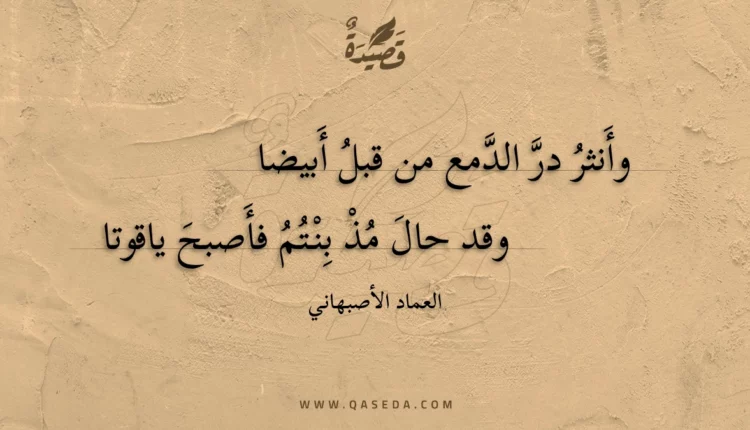 قَصِيْدَةٌ
وأَنثرُ درَّ الدَّمع من قبلُ أَبيضا
وقد حالَ مُذْ بِنْتُمُ فأَصبحَ ياقوتا
العماد الأصبهاني
WWW.QASEDA.COM